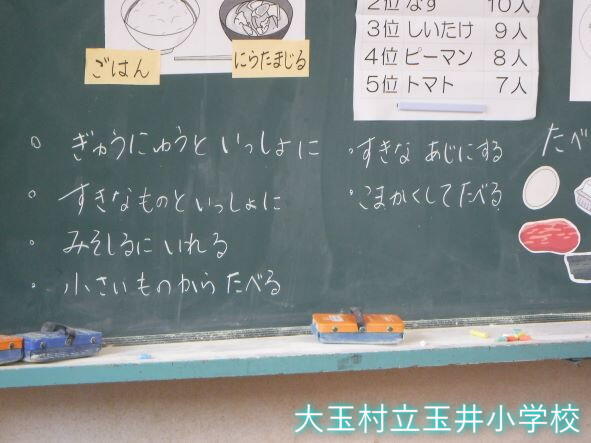 ごはん
にらたまじる
2位 なす 10人
3位 しいたけ 9人
4位 ピーマン 8人
5位 トマト 7人
・ぎゅうにゅうと いっしょに
・すきなものと いっしょに
・みそしるに いれる
・小さいものから たべる
・すきな あじにする
・こまかくして たべる
たべ
大玉村立玉井小学校